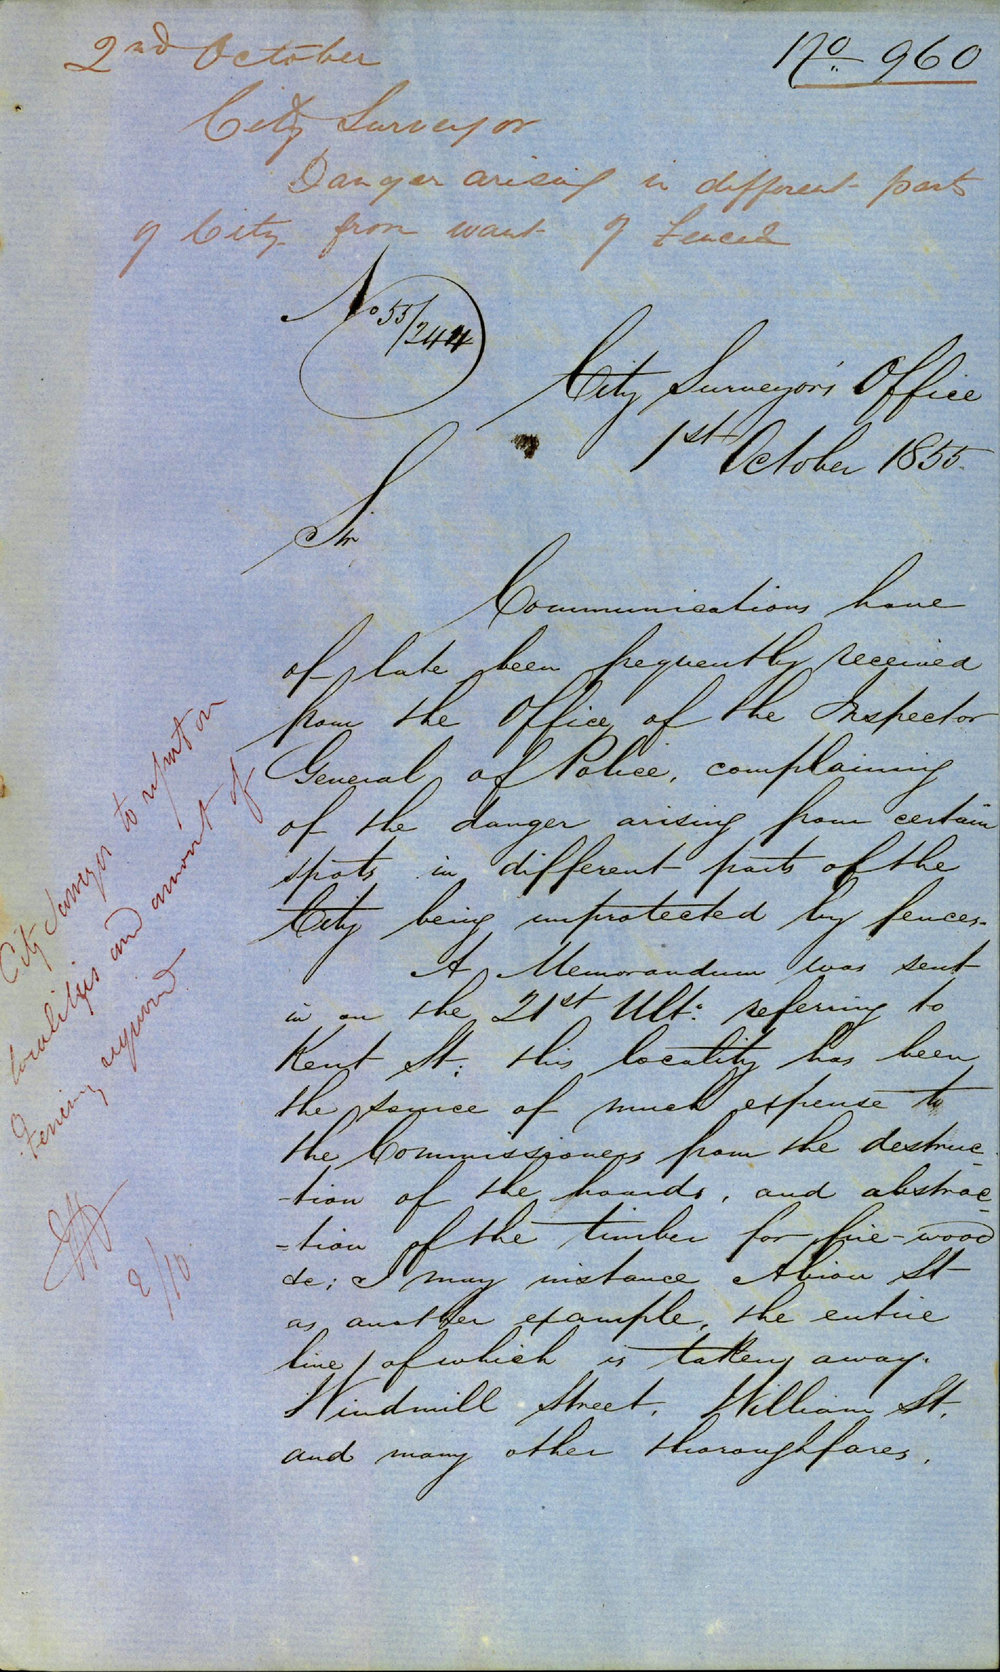 2nd October
No. 960
City Surveyor
Danger arising in different parts
of City from want of Fences
No 55/244
City Surveyor's Office
1st October 1855.
Sir
Communications have
of late been frequently received
from the Office of the Inspector
General of Police, complaining
of the danger arising from certain
spots in different parts of the
City being unprotected by fences.
A Memorandum was sent
in on the 21st Ult: referring to
Kent St: this locality has been
the source of much expense to
the Commissioners from the destruc-
-tion of the hoards, and abstrac-
-tion of the timber for fire-wood
&c; I may instance Albion St
as another example, the entire
line of which is taken away.
Windmill Street, William St,
and many other thoroughfares,
City Surveyor to report on
localities and amount of
Fencing required
2/10